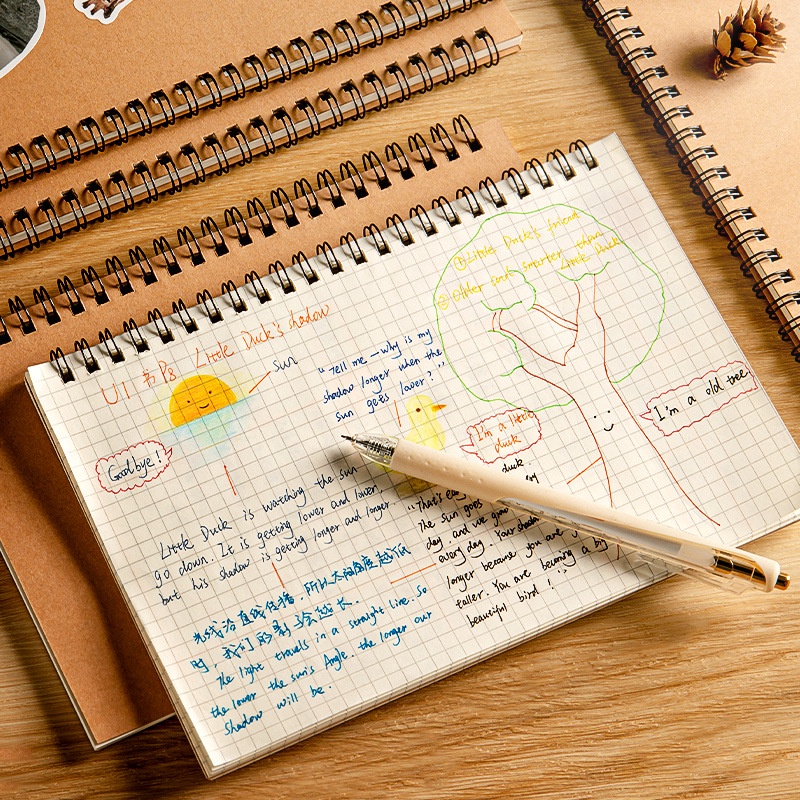 U1 书P8 Little Duck's shadow
sun
Goodbye!
"Tell me - why is my
shadow longer when the
sun gets lower?"
① Little Duck's friend
② Older and smarter than
Little Duck
I'm a little
duck
I'm a old tree.
Little Duck is watching the sun
go down. It is getting lower and lower,
but his shadow is getting longer and longer.
duck.
"That's
The sun goes
day and we
every day. Your shadow
longer because you are
taller. You are becoming a big
beautiful bird!"
光线沿直线传播,所以太阳角度越低
时,我们的影子会越长.
The light travels in a straight line. So
the lower the sun's Angle. the longer our
shadow will be.